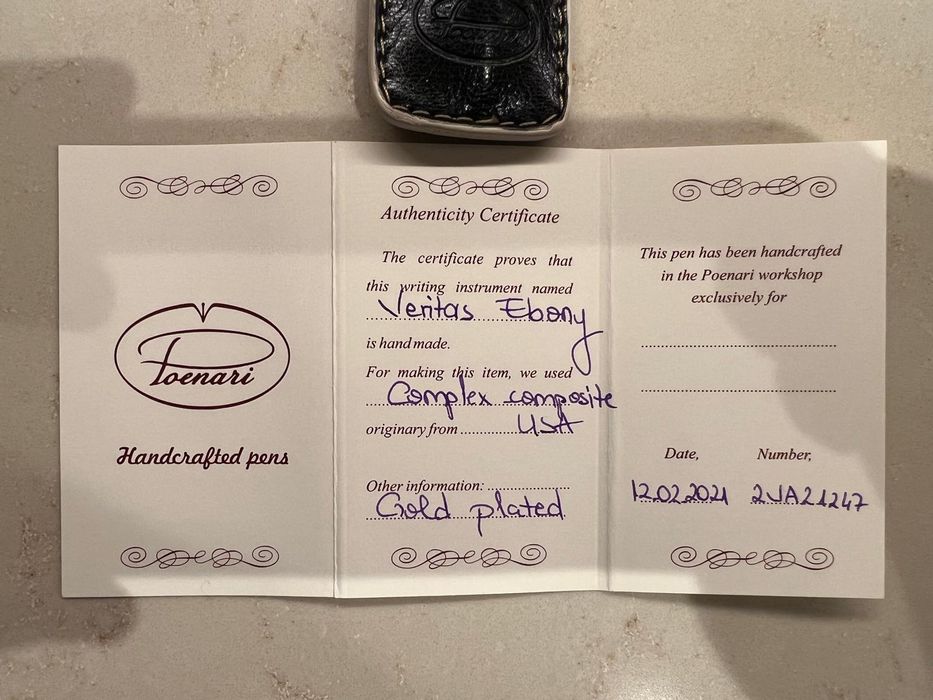 Poenari
Poenari
Handcrafted pens
Authenticity Certificate
The certificate proves that
this writing instrument named
Veritas Ebony
is hand made.
For making this item, we used
Complex composite
originary from USA
Other information:
Gold plated
This pen has been handcrafted
in the Poenari workshop
exclusively for
Date, Number,
12.02.2021 2VA21247